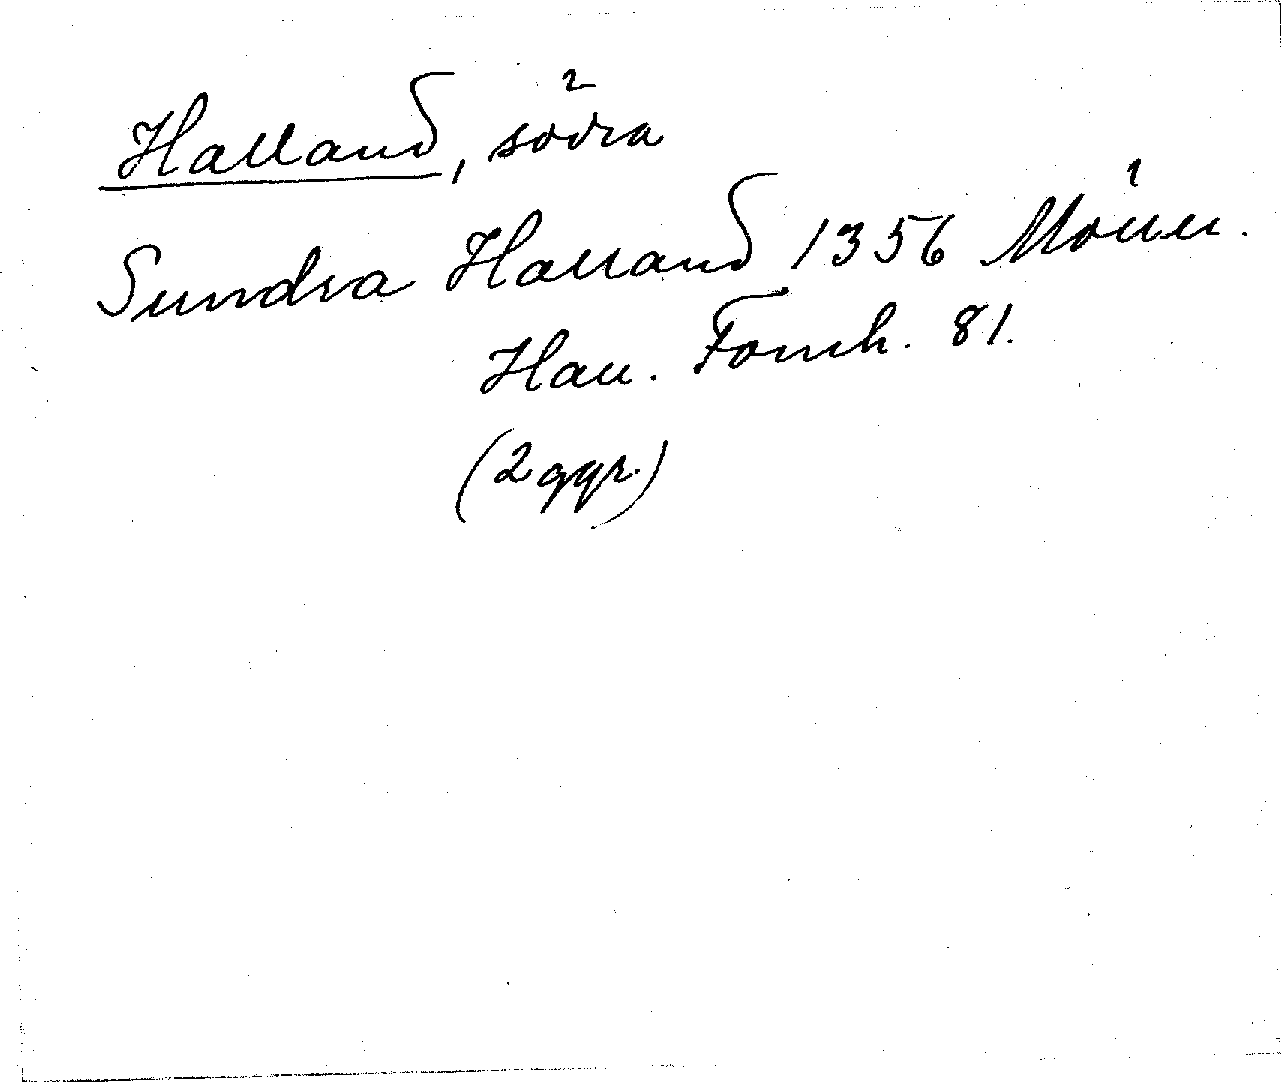 Halland, södra
Sundra Halland 1356 Möller.
Hall. Fornh. 81.
(2 ggr.)